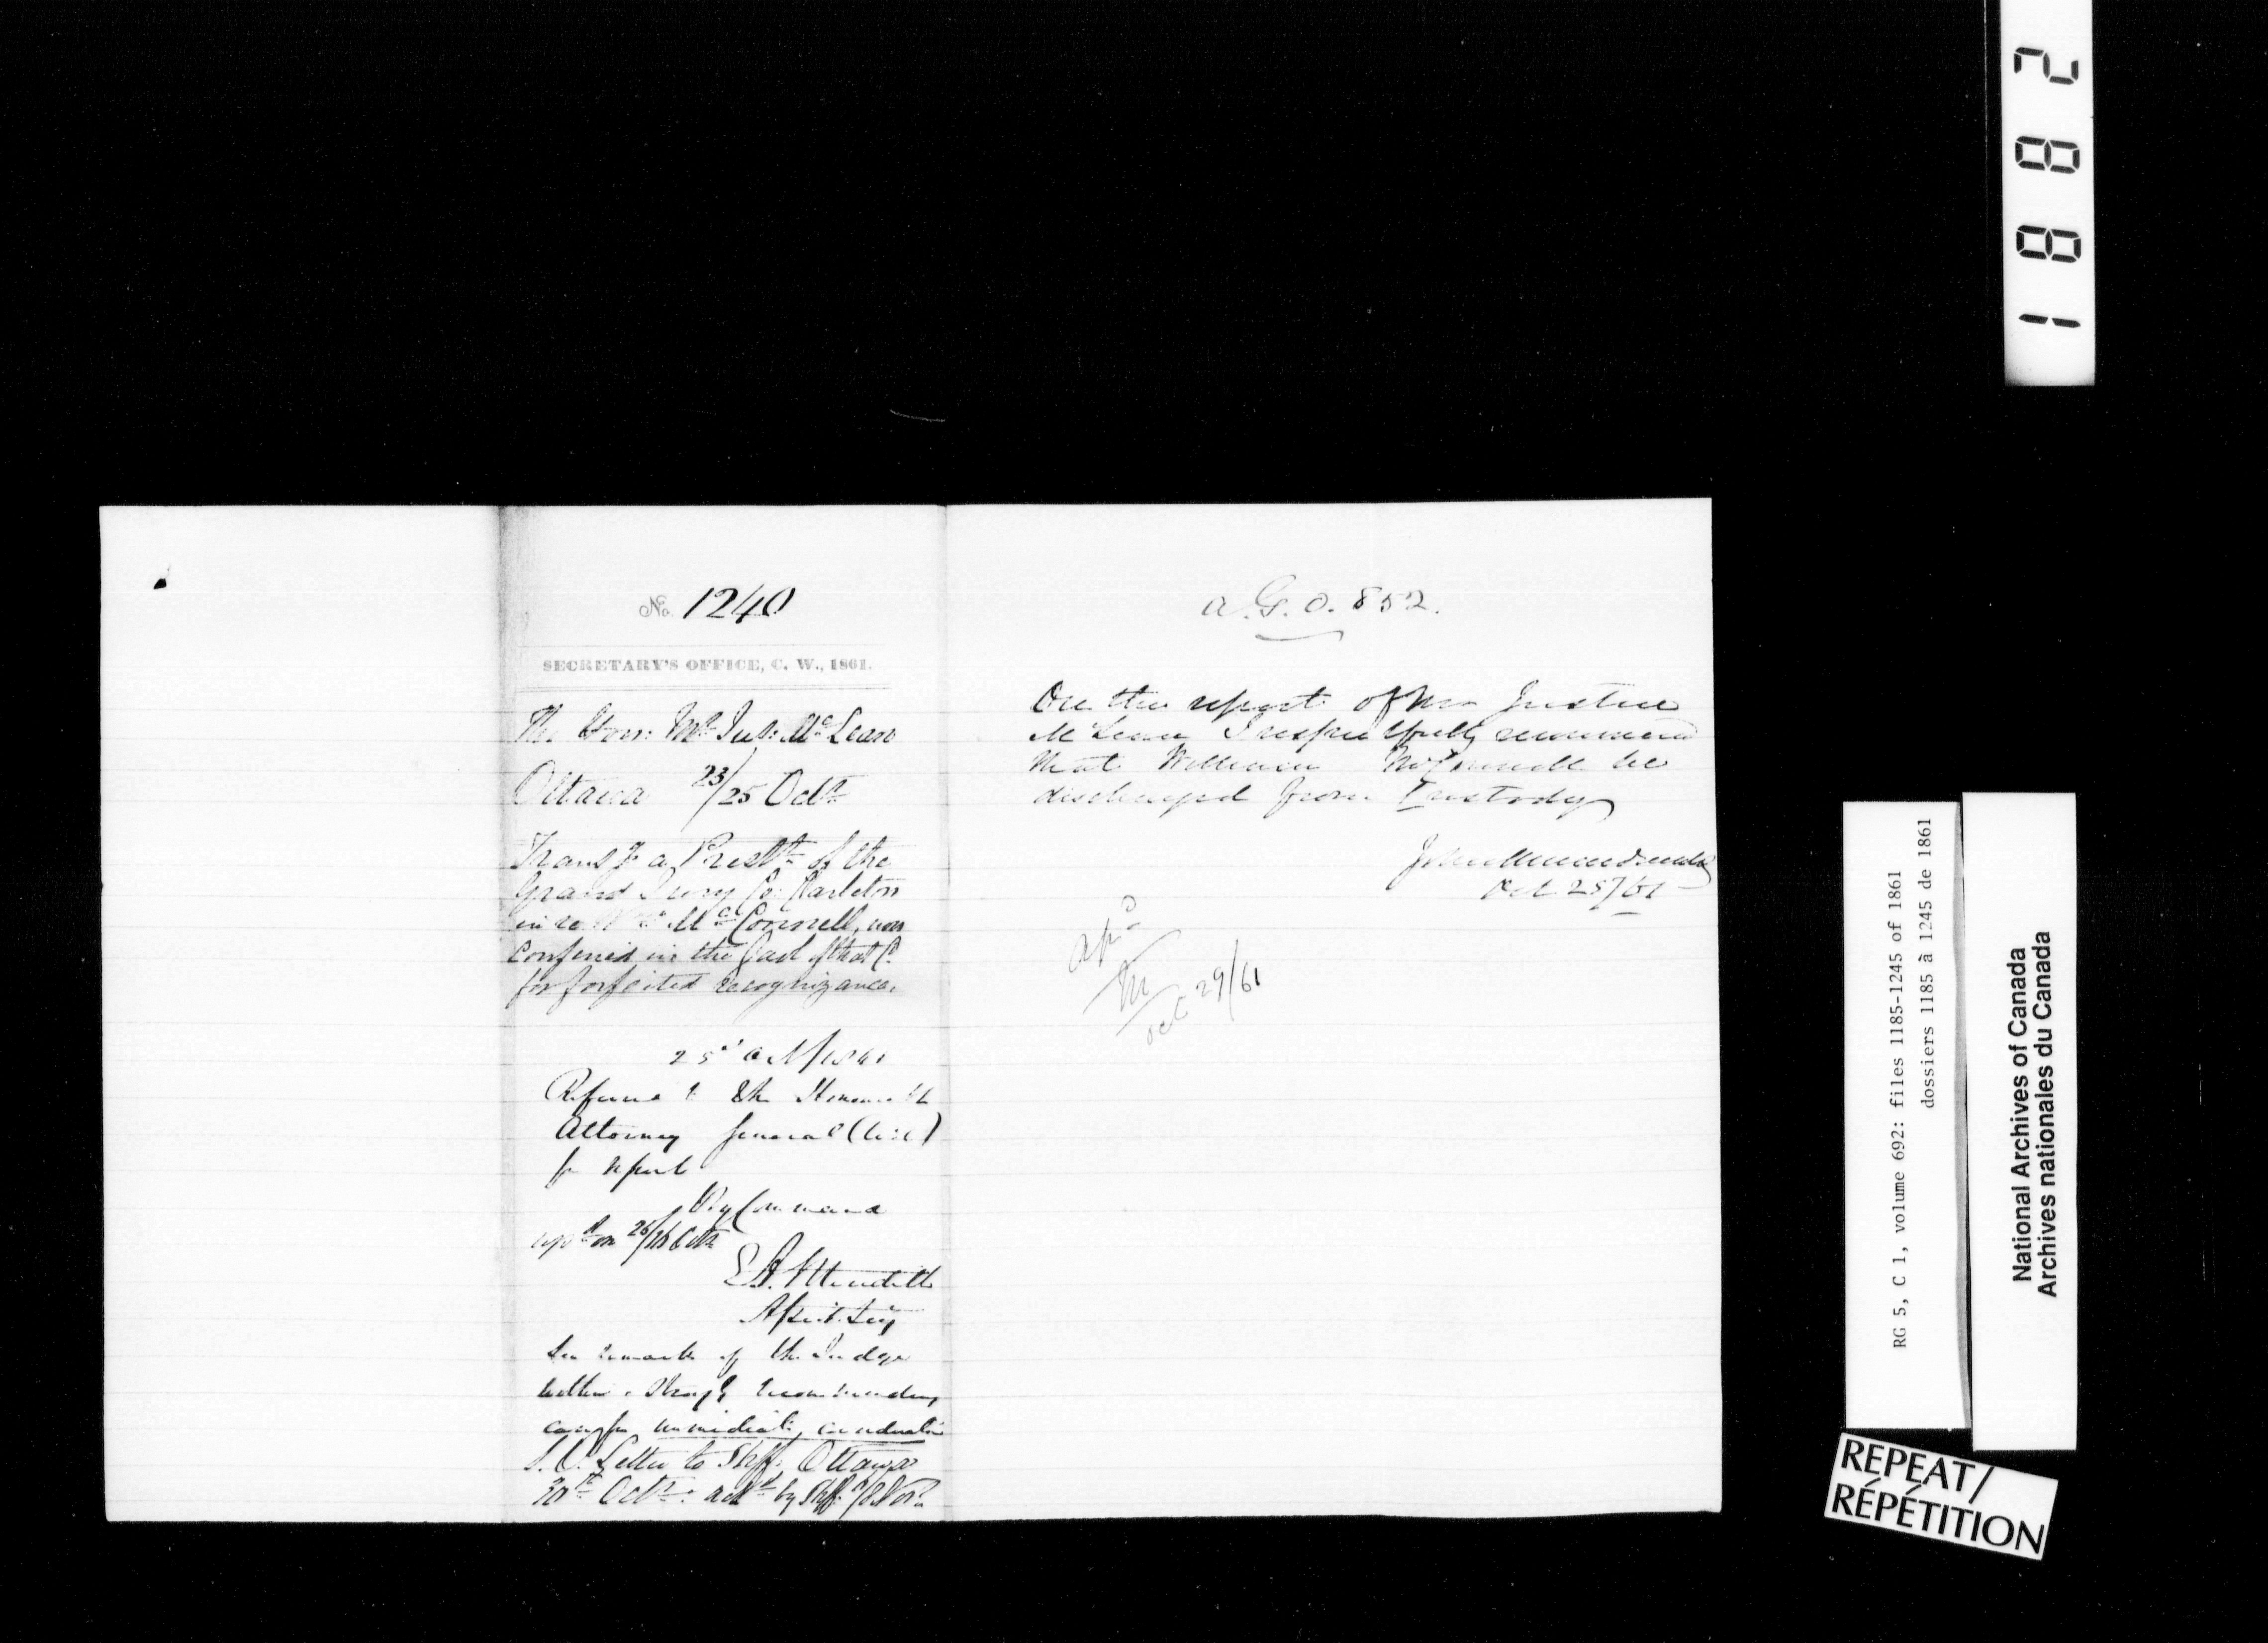 No. 1240
SECRETARY'S OFFICE, C. W., 1861.
The Hon: Mr. Jus: McLean
Ottawa 23/25 Octr
Transg a Prestt of the
Grand Jury Co: Carleton
in re Wm McConnell, now
confined in the Gaol of that Co
for forfeited recognizance.
25 Oct/1861
Referred to the Honorable
Attorney General (West)
for report
By Command
on 26/
E A Meredith
Asst. Secy
See remarks of the Judge
within strongly recommending
case for immediate consideration
S.O. Letter to Shff: Ottawa
30th Octr: by Shff:
A.G.O. 852.
On the report of Mr Justice
McLean I respectfully recommend
that William McConnell be
discharged from Custody
Oct 25/61
Apd
Oct 29/61
1882
RG 5, C 1, volume 692: files 1185-1245 of 1861
dossiers 1185 à 1245 de 1861
National Archives of Canada
Archives nationales du Canada
REPEAT/
RÉPÉTITION